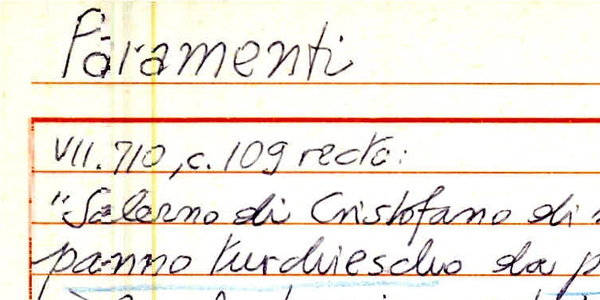 Paramenti
VII.710, c. 109 recto:
"Salerno di Cristofano di
panno turchiescho da p